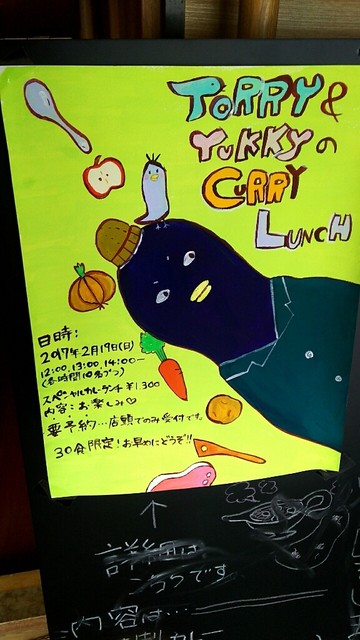 TORRY &
YUKKY の
CURRY
LUNCH
日時:
2017年2月19日(日)
12:00, 13:00, 14:00ー
(各時間10名づつ)
スペシャルカレーランチ ¥1,300
内容:お楽しみ♡
要予約…店頭でのみ受付です。
30食限定!お早めにどうぞ!!
↑
詳細は
です
内容は…